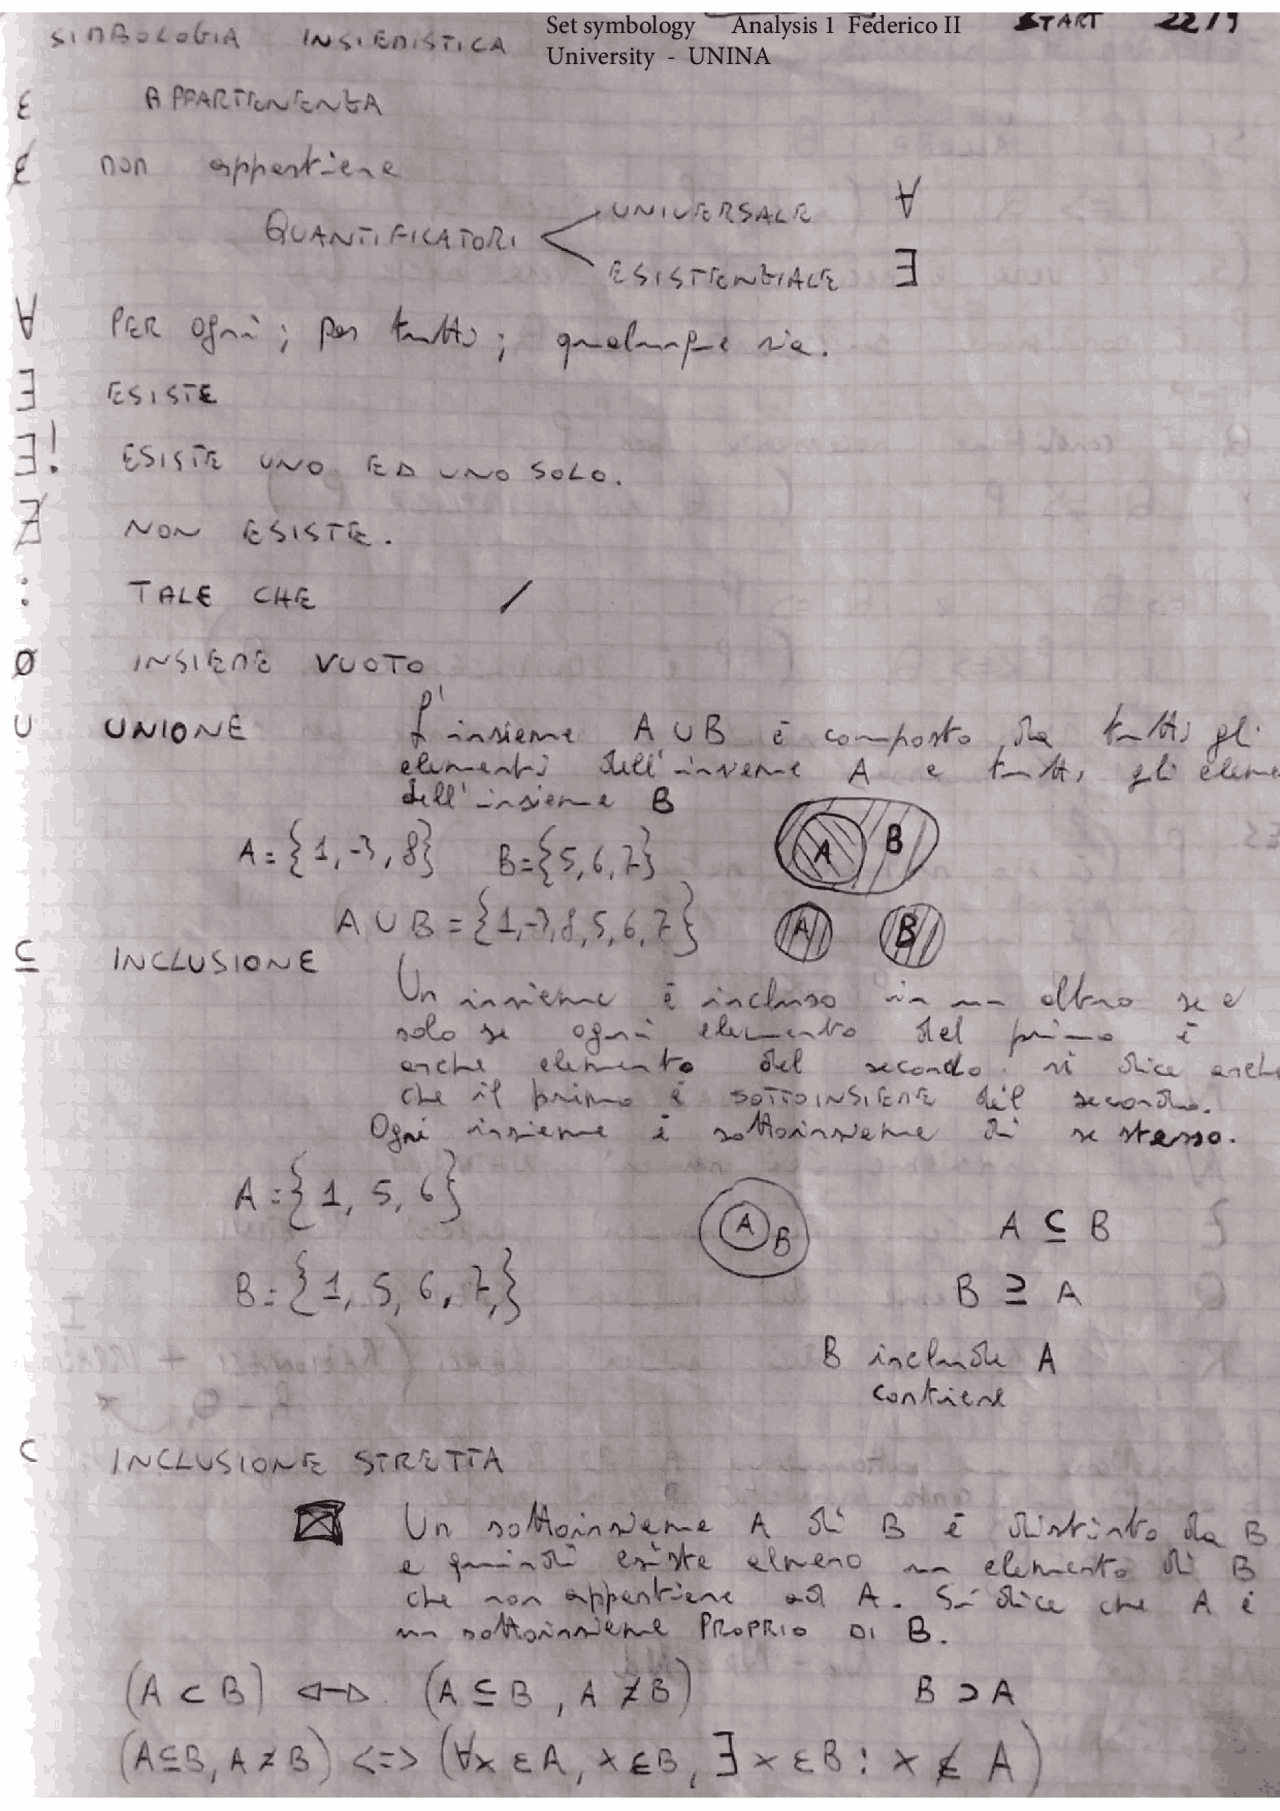 SIMBOLOGIA INSIEMISTICA
Set symbology Analysis 1 Federico II
University - UNINA
START 22/9
∈ APPARTENENZA
∉ non appartiene
QUANTIFICATORI
UNIVERSALE ∀
ESISTENZIALE ∃
∀ PER ogni; per tutti; qualunque sia.
∃ ESISTE
∃! ESISTE UNO ED UNO SOLO.
∄ NON ESISTE.
: TALE CHE /
∅ INSIEME VUOTO
∪ UNIONE L'insieme A ∪ B è composto da tutti gli
elementi dell'insieme A e tutti gli eleme
dell'insieme B
A = {1, -3, 8} B = {5, 6, 7}
A B
A ∪ B = {1, -3, 8, 5, 6, 7}
A B
⊆ INCLUSIONE Un insieme è incluso in un altro se e
solo se ogni elemento del primo è
anche elemento del secondo. si dice anche
che il primo è SOTTOINSIEME del secondo.
Ogni insieme è sottoinsieme di se stesso.
A = {1, 5, 6}
A B
A ⊆ B
B = {1, 5, 6, 7,}
B ⊇ A
B include A
contiene
⊂ INCLUSIONE STRETTA
Un sottoinsieme A di B è distinto da B
e quindi esiste almeno un elemento di B
che non appartiene ad A. Si dice che A è
un sottoinsieme PROPRIO DI B.
(A ⊂ B) ⇔ (A ⊆ B, A ≠ B) B ⊃ A
(A⊆B, A ≠ B) <=> (∀x ∈ A, x ∈ B, ∃ x ∈ B : x ∉ A)